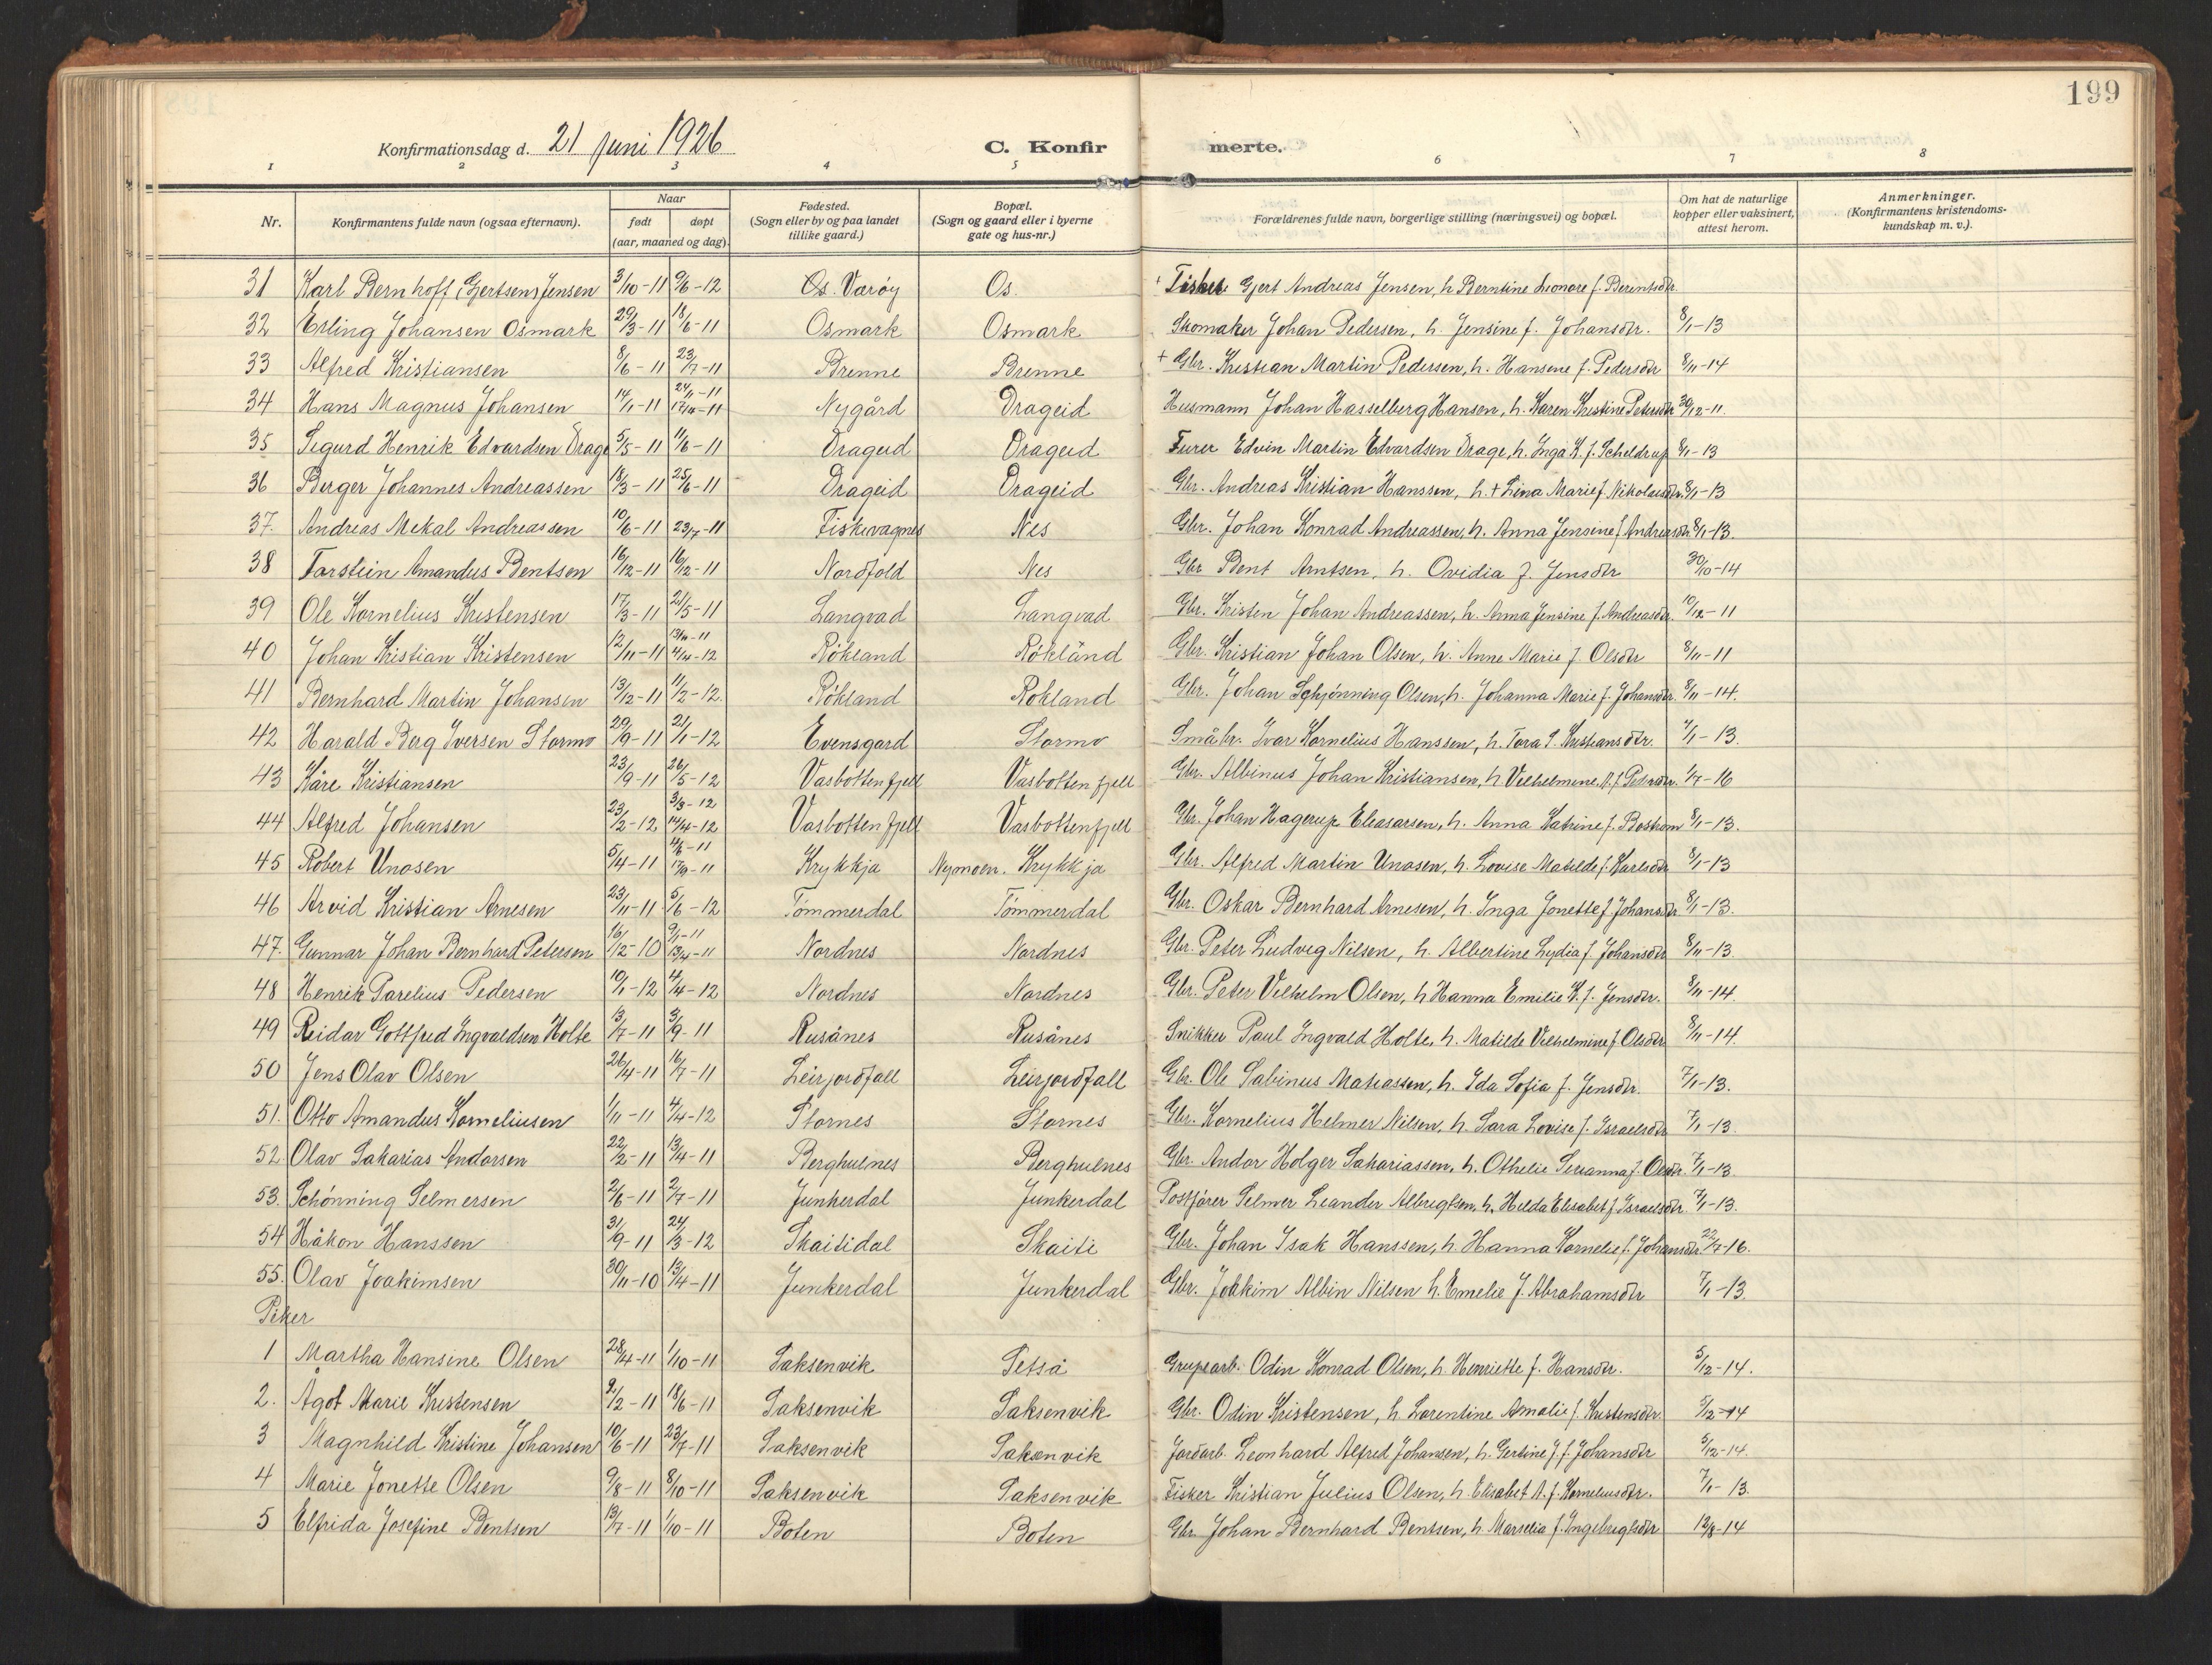 199
Konfirmationsdag d. 21 juni 1926 C. Konfirmerte.
1 2 3 4 5 6 7 8
Nr. Konfirmantens fulde navn (ogsaa efternavn). Naar født døpt (aar, maaned og dag). Fødested. (Sogn eller by og paa landet tillike gaard.) Bopæl. (Sogn og gaard eller i byerne gate og hus-nr.) Forældrenes fulde navn, borgerlige stilling (næringsvei) og bopæl. Om hat de naturlige kopper eller vaksinert, attest herom. Anmerkninger. (Konfirmantens kristendoms-kundskap m. v.).
31 Karl Bernhoff (Gertsen) Jensen 3/10-11 9/6-12 Os. Værøy Os. + Fisker Gjert Andreas Jensen, h. Berntine Leonore f. Berintsdtr.
32 Erling Johansen Osmark 29/3-11 18/6-11 Osmark Osmark Skomaker Johan Pedersen, h. Jensine f. Johansdtr. 8/1-13
33 Alfred Kristiansen 8/6-11 23/7-11 Brenne Brenne + Gbr. Kristian Martin Pedersen, h. Hansene f. Pedersdtr 8/11-14
34 Hans Magnus Johansen 14/1-11 24/1-11 17/4-11 Nygård Drageid Husmann Johan Hasselberg Hansen, h. Karen Kristine Petersdtr 30/12-11.
35 Sigurd Henrik Edvardsen Drage 5/5-11 11/6-11 Drageid Drageid Furer Edvin Martin Edvardsen Drage, h. Inga K. f. Scheldrup 8/1-13
36 Berger Johannes Andreassen 18/3-11 25/6-11 Drageid Drageid Gbr. Andreas Kristian Hanssen, h. + Lina Marie f. Nikolaisdtr. 8/1-13
37. Andreas Mekal Andreassen 10/6-11 23/7-11 Fiskevagnes Nes Gbr. Johan Konrad Andreassen, h. Anna Jensine f. Andreasdtr. 8/1-13.
38 Torstein Amandus Bentsen 16/12-11 16/12-11 Nordfold Nes Gbr Bent Arntsen, h. Ovidia f. Jensdtr 30/10-14
39 Ole Kornelius Kristensen 17/3-11 21/5-11 Langvad Langvad Gbr. Kristen Johan Andreassen, h. Anna Jensine f. Andreasdtr. 10/12-11
40 Johan Kristian Kristensen 12/11-11 13/11-11 4/4-12 Røkland Røkland Gbr. Kristian Johan Olsen, h. Anne Marie f. Olsdtr 8/11-11
41 Bernhard Martin Johansen 13/12-11 11/2-12. Røkland Røkland Gbr. Johan Schjønning Olsen, h. Johanna Marie f. Johansdtr. 8/11-14.
42 Harald Berg Iversen Stormo 29/9-11 21/1-12 Evensgard Stormo Småbr. Ivar Kornelius Hanssen, h. Tora S. Kristiansdtr. 7/1-13.
43 Kåre Kristiansen 23/9-11 26/5-12 Vasbottenfjell Vasbottenfjell Gbr. Albinus Johan Kristiansen, h. Vilhelmine. A. f. Petersdtr. 1/7-16
44 Alfred Johansen 23/2-12 3/3-12 14/4-12 Vasbottenfjell Vasbottenfjell Gbr. Johan Hagerup Eleasarsen, h. Anna Katrine f. Bostrom 8/1-13.
45 Robert Unasen 5/4-11 4/6-11 17/9-11 Krykkja Nymoen. Krykkja Gbr. Alfred Martin Unasen, h. Lovise Matilde f. Karlsdtr 8/1-13
46 Arvid Kristian Arnesen 23/11-11 5/6-12 Tømmerdal Tømmerdal Gbr. Oskar Bernhard Arnesen, h. Inga Jonette f. Johansdtr 8/1-13.
47. Gunnar Johan Bernhard Petersen 16/12-10 9/1-11 13/4-11 Nordnes Nordnes Gbr. Peter Ludvig Nilsen, h. Albertine Lydia f. Johansdtr 8/11-13.
48 Henrik Parelius Pedersen 10/1-12 4/4-12 Nordnes Nordnes Gbr. Peter Vilhelm Olsen, h Hanna Emilie K. f. Jensdtr. 8/11-14.
49 Reidar Gottfred Ingvaldsen Holte 13/7-11 3/9-11 Rusånes Rusånes Snikker Paul Ingvald Holte, h. Matilde Vilhelmine f. Olsdtr 8/11-14.
50 Jens Olav Olsen 26/4-11 16/7-11 Leirjordfall Leirjordfall Gbr. Ole Sabinus Matiassen, h. Ida Sofia f. Jensdtr. 7/1-13.
51. Otto Amandus Korneliusen 1/11-11 4/4-12 Stornes Stornes Gbr. Kornelius Helmer Nilsen, h. Sara Lovise f. Israelsdtr 7/1-13.
52. Olav Sakarias Andorsen 22/2-11 13/4-11 Berghulnes Berghulnes Gbr. Andor Holger Sakariassen, h. Othelie Serianna f. 7/1-13.
53. Schønning Selmersen 2/6-11 2/7-11 Junkerdal Junkerdal Postfører Selmer Leander Albrigtsen, h. Hilda Elisabet f. Israelsdtr. 7/1-13.
54 Håkon Hanssen 31/9-11 24/3-12 Skaitidal Skaiti Gbr. Johan Isak Hanssen, h. Hanna Kornelie f. Johansdtr. 22/7-16.
55. Olav Joakimsen 30/11-10 13/4-11 Junkerdal Junkerdal Gbr. Joakim Albin Nilsen h. Emelie f. Abrahamsdtr 7/1-13.
Piker
1 Martha Hansine Olsen 28/4-11 1/10-11 Saksenvik Setså Grupearb. Odin Konrad Olsen, h. Henriette f. Hansdtr. 5/12-14.
2. Ågot Marie Kristensen 2/2-11 18/6-11 Saksenvik Saksenvik Gbr. Odin Kristensen, h. Lorentine Amalie f. Kristensdtr. 5/12-14
3 Magnhild Kristine Johansen 10/6-11 23/7-11 Saksenvik Saksenvik Jordarb. Leonhard Alfred Johansen, h. Gertine J. f. Johansdtr 5/12-14.
4 Marie Jonette Olsen 9/8-11 8/10-11 Saksenvik Saksenvik Fisker Kristian Julius Olsen, h. Elisabet A. f. Korneliusdtr. 7/1-13.
5 Elfrida Josefine Bentsen 13/7-11 1/10-11 Boten Boten Gbr Johan Bernhard Bentsen, h. Marselia f. Ingebrigtsdtr 12/8-14